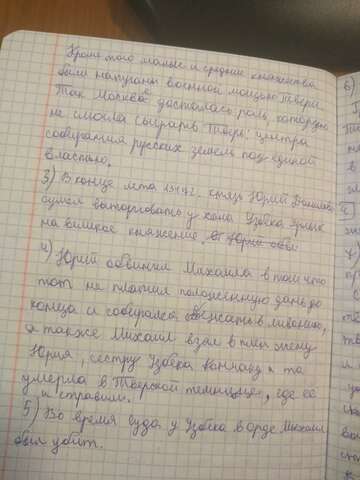 Кроме того малые и средние княжества
были напуганы военной мощью Твери.
Так Москве досталась роль, которую
не смогла сыграть Тверь: центра
собирания русских земель под единой
властью.
3) В конце лета 1317г. князь Юрий
сумел выторговать у хана Узбека ярлык
на великое княжение.
4) Юрий обвинил Михаила в том что
тот не платил положенную дань до
конца и собирался бежать в Ливонию,
а также Михаил взял в плен жену
Юрия, сестру Узбека Кончаку и та
умерла в Тверской темнице, где её
и стравили.
5) Во время суда у Узбека в орде Михаил
был убит.